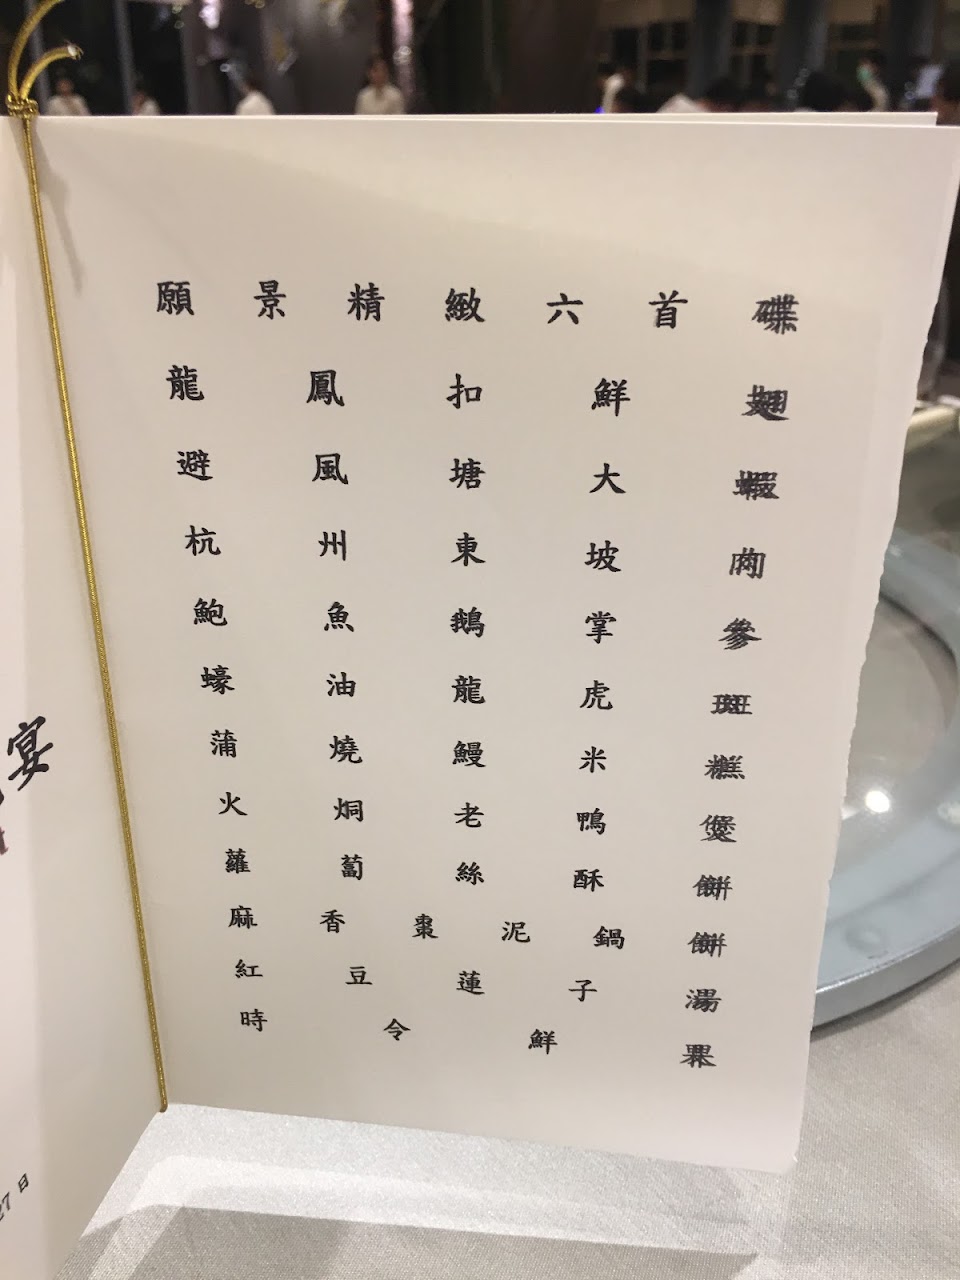 願景精緻六首碟
龍鳳扣鮮翅
避風塘大蝦
杭州東坡肉
鮑魚鵝掌參
蠔油龍虎斑
蒲燒鰻米糕
火烔老鴨煲
蘿蔔絲酥餅
麻香棗泥鍋餅
紅豆蓮子湯
時令鮮果
宴
27日